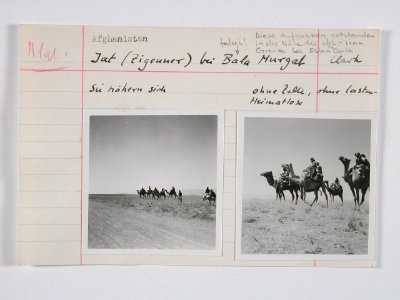 Afghanistan
Diese Aufnahmen entstanden
in der Nähe der afgh.-iran.
Grenze bei Eslam Qala
falsch!
A 1al.
Jat (Zigeuner) bei Bala Murgab
Clark
Sie nähern sich
ohne Zelte, ohne Lasten
Heimatlose